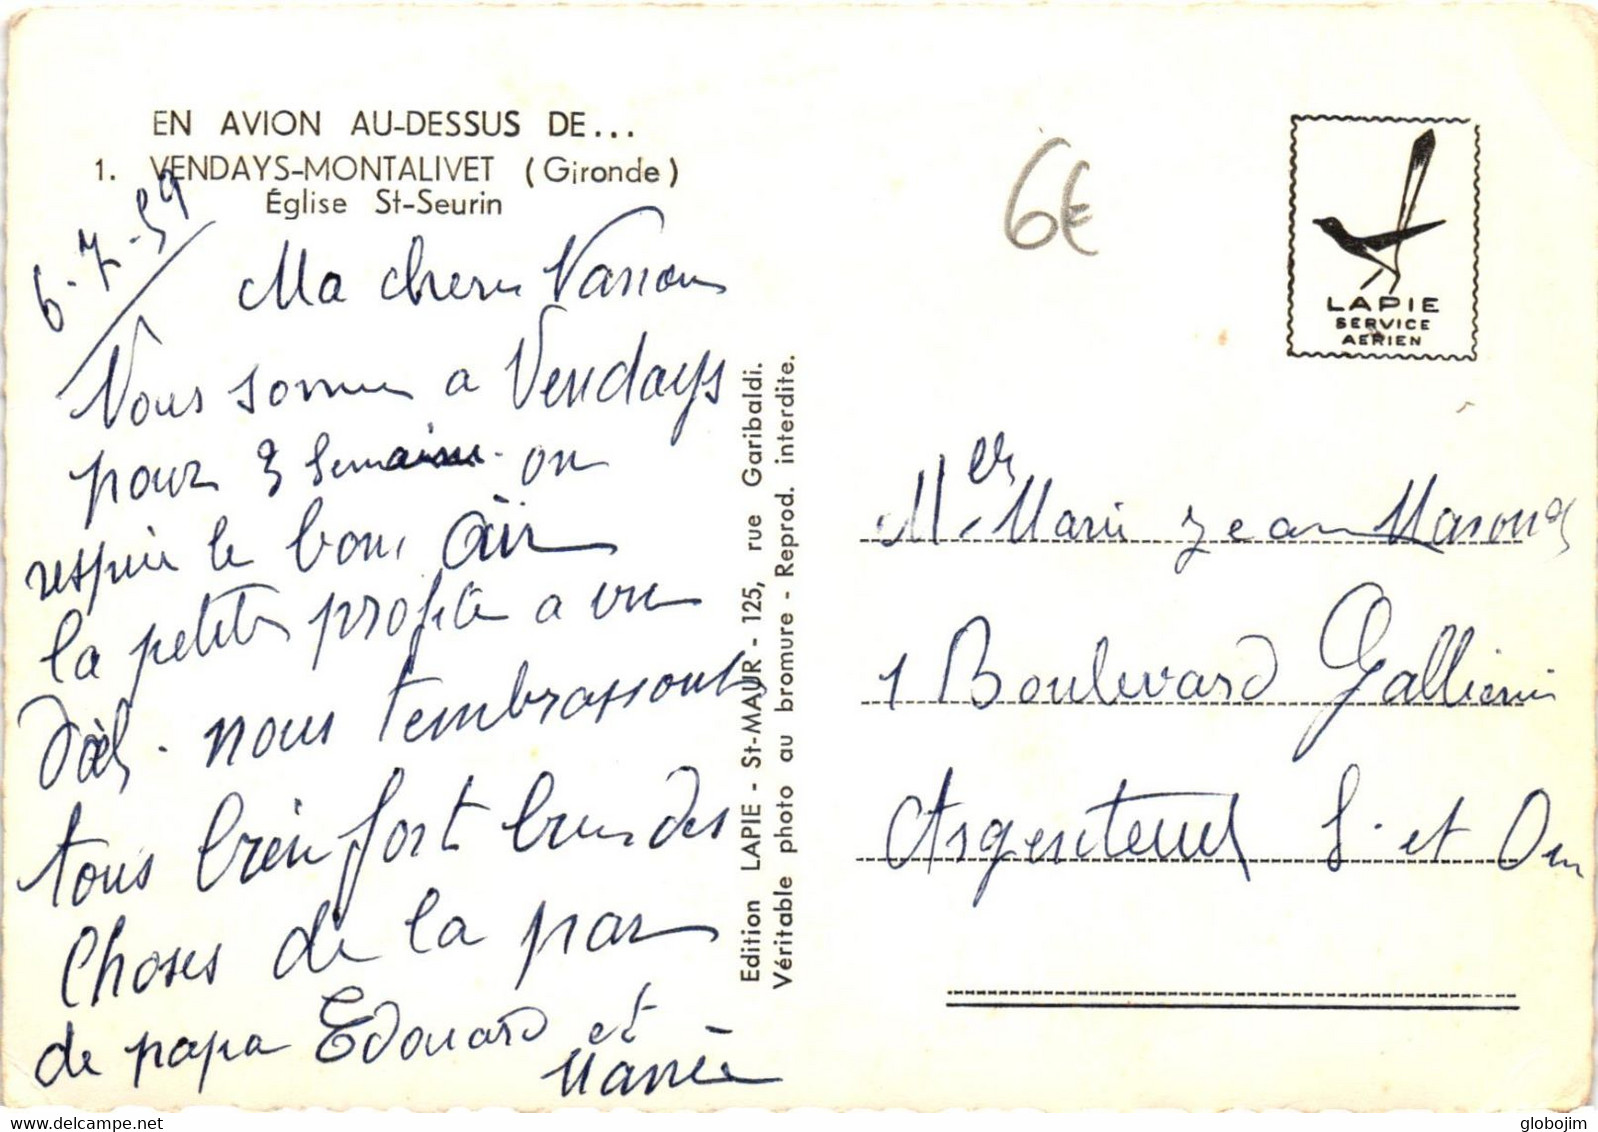 EN AVION AU-DESSUS DE...
1. VENDAYS-MONTALIVET (Gironde)
Église St-Seurin
6-7-59
Ma cherie
Nous sommes a Vendays
pour 3 semaines. on
respire le bon air
la petite profite a vue
nous t'embrassons
tous bien fort bien des
choses de la par
de papa Edouard et
Edition LAPIE - St-MAUR - 125, rue Garibaldi.
Véritable photo au bromure - Reprod. interdite.
6€
LAPIE
SERVICE
AERIEN
Marie jean
1 Boulevard Gallieni
Argenteuil S. et Oise
globojim